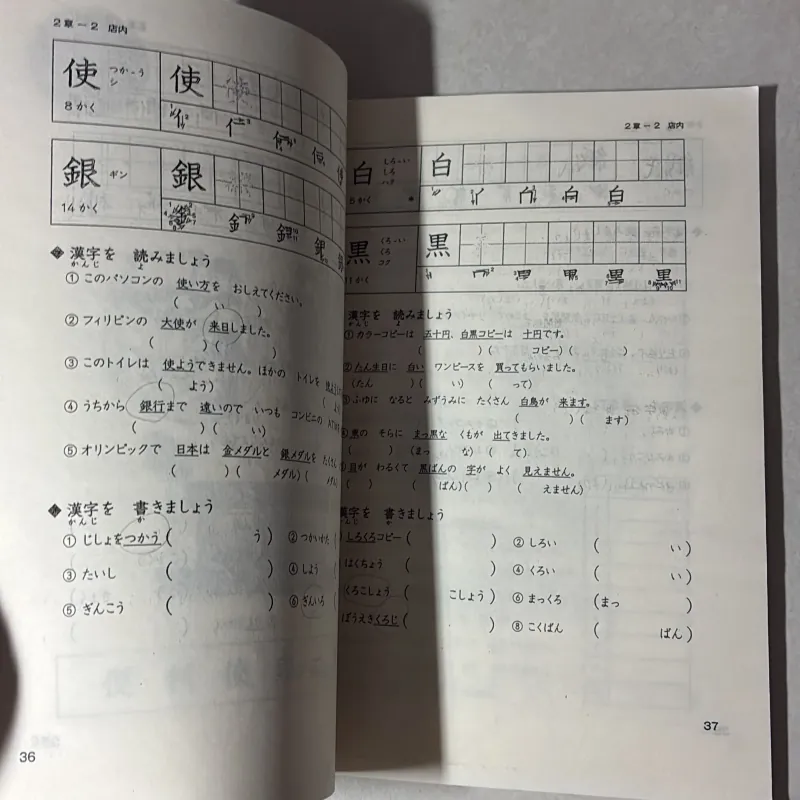 2章－2 店内
使 つか-う 使
シ
8かく
銀 ギン 銀
14かく
漢字を 読みましょう
かんじ よ
① このパソコンの 使い方を おしえてください。
( い )
② フィリピンの 大使が 来日しました。
( )( )
③ このトイレは 使ようできません。ほかの トイレを
( よう)
④ うちから 銀行まで 遠いので いつも コンビニの
( )( い)
⑤ オリンピックで 日本は 金メダルと 銀メダルを
( )( メダル)( メダル)
漢字を 書きましょう
かんじ か
① じしょをつかう ( う ) ② つかいかた
③ たいし ( ) ④ しよう
⑤ ぎんこう ( ) ⑥ ぎんいろ
36
2章－2 店内
白 しろ-い 白
しろ
ハク
5かく
黒 くろ-い 黒
くろ
コク
11かく
漢字を 読みましょう
かんじ よ
① カラーコピーは 五十円、白黒コピーは 十円です。
( )( コピー)( )
② たん生日に 白い ワンピースを 買ってもらいました。
(たん )( い) ( って)
ふゆに なると みずうみに たくさん 白鳥が 来ます。
( )( ます)
そらに まっ黒な くもが 出てきました。
( )(まっ な) ( て)
わるくて 黒ばんの 字が よく 見えません。
( )( ばん)( ) ( えません)
漢字を 書きましょう
かんじ か
しろくろコピー ( ) ② しろい ( い)
はくちょう ( ) ④ くろい ( い)
くろこしょう ( こしょう) ⑥ まっくろ (まっ )
ぼうえきくろじ ( ) ⑧ こくばん ( ばん)
37